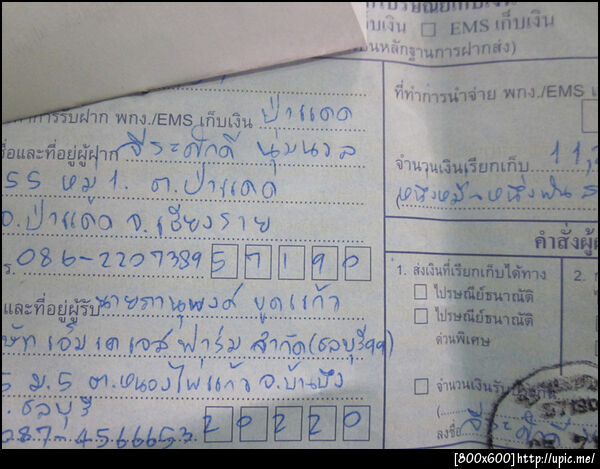 เก็บเงิน ☐ EMS เก็บเงิน
หลักฐานการฝากส่ง)
การรับฝาก พกง./EMS เก็บเงิน ป่าแดด
ที่ทำการนำจ่าย พกง./EMS
ชื่อและที่อยู่ผู้ฝาก วีระศักดิ์ นุ่มนวล
จำนวนเงินเรียกเก็บ 11,
55 หมู่ 1. ต.ป่าแดด
(หนึ่งหมื่นหนึ่งพัน
อ.ป่าแดด จ.เชียงราย
คำสั่งผู้
ร. 086-2207389 57190
1. ส่งเงินที่เรียกเก็บได้ทาง
☐ ไปรษณีย์ธนาณัติ
☐ ไปรษณีย์ธนาณัติ
ด่วนพิเศษ
2.
และที่อยู่ผู้รับ นายภานุพงศ์ ขูดแก้ว
ษัท เอ็ม เค เอส ฟาร์ม จำกัด (ชลบุรี 99)
5 ม.5 ต.หนองไผ่แก้ว อ.บ้านบึง
☐ จำนวนเงินรับ
จ.ชลบุรี 20220
ลงชื่อ วีระศักดิ์
087-4566653
[800x600]http://upic.me/